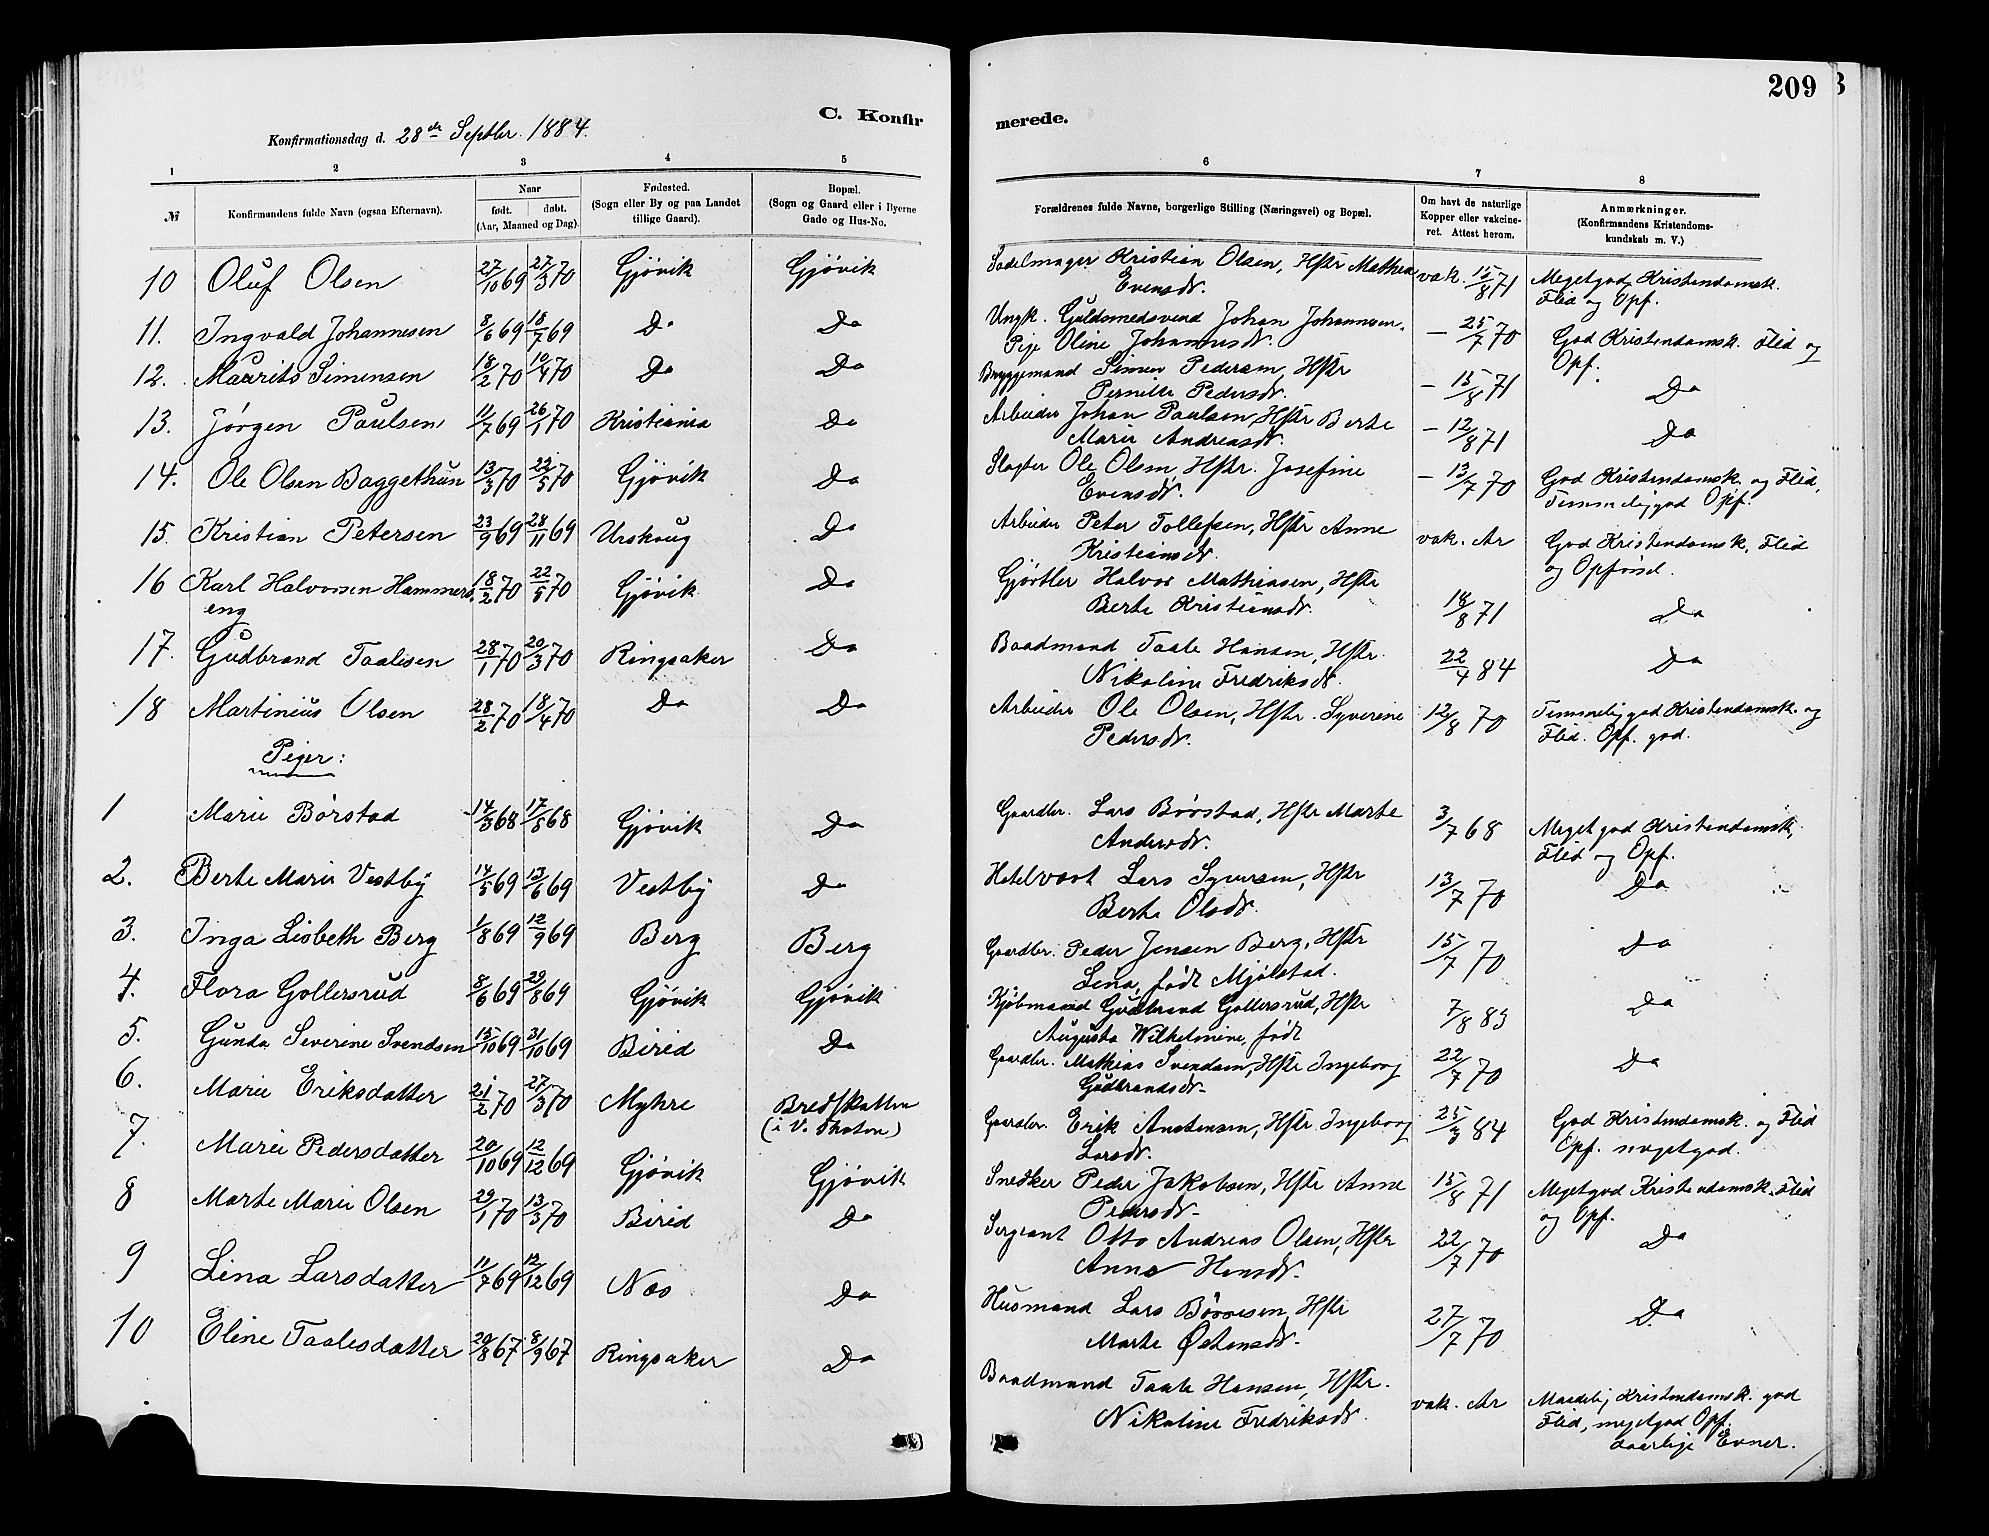 209
C. Konfir
merede.
Konfirmationsdag d. 28de Septbr. 1884.
1 2 3 4 5 6 7 8
№
Konfirmandens fulde Navn (ogsaa Efternavn).
Naar
født. døbt.
(Aar, Maaned og Dag).
Fødested.
(Sogn eller By og paa Landet
tillige Gaard).
Bopæl.
(Sogn og Gaard eller i Byerne
Gade og Hus-No.
Forældrenes fulde Navne, borgerlige Stilling (Næringsvei) og Bopæl.
Om havt de naturlige
Kopper eller vakcine-
ret. Attest herom.
Anmærkninger.
(Konfirmandens Kristendoms-
kundskab m. V.)
10 Oluf Olsen 27/10 69 27/3 70 Gjøvik Gjøvik Sadelmager Kristian Olsen, Hstr Mathea vak. 15/8 71 Megetgod Kristendomsk.
Evensdr. Flid og Opf.
11. Ingvald Johannesen 8/6 69 18/7 69 Do Do Ungk. Guldsmedsvend Johan Johannesen, – 25/7 70 God Kristendomsk. Flid og
Pige Oline Johannesdr. Opf.
12. Maurits Simensen 18/2 70 10/4 70 Do Do Bryggemand Simen Pedersen, Hstr – 15/8 71 Do
Pernille Pedersdr.
13. Jørgen Paulsen 11/7 69 26/1 70 Kristiania Do Arbeider Johan Paulsen, Hstr Berte – 12/8 71 Do
Marie Andreasdr.
14. Ole Olsen Baggethun 13/3 70 22/5 70 Gjøvik Do Slagter Ole Olsen Hstr. Josefine – 13/7 70 God Kristendomsk. og Flid,
Evensdr. Temmeliggod Opf.
15. Kristian Petersen 23/9 69 28/11 69 Urskoug Do Arbeider Peter Tollefsen, Hstr Anne vak. Ar God Kristendomsk, Flid
Kristiansdr. og Opførsel.
16 Karl Halvorsen Hammers- 18/2 70 22/5 70 Gjøvik Do Gjørtler Halvor Mathiasen, Hstr 18/8 71 Do
eng Berte Kristiansdr.
17. Gudbrand Taalesen 28/1 70 20/3 70 Ringsaker Do Baadmand Taale Hansen, Hstr. 22/4 84 Do
Nikoline Fredriksdr.
18 Martinius Olsen 28/2 70 18/4 70 Do Do Arbeider Ole Olsen, Hstr. Syverine 12/8 70 Temmeliggod Kristendomsk. og
Pedersdr. Flid. Opf. god.
Piger:
1 Marie Børstad 14/3 68 17/5 68 Gjøvik Do Gaardbr. Lars Børstad, Hstr Marte 3/7 68 Megetgod Kristendomsk,
Andersdr. Flid og Opf.
2. Berte Marie Vestby 14/5 69 13/6 69 Vestby Do Hotelvært Lars Syversen, Hstr 13/7 70 Do
Berte Olsdr.
3. Inga Lisbeth Berg 1/8 69 12/9 69 Berg Berg Gaardbr. Peder Jensen Berg, Hstr 15/7 70 Do
Lena, født Mjølstad.
4. Flora Gollersrud 8/6 69 29/8 69 Gjøvik Gjøvik Kjøbmand Gudbrand Gollersrud, Hstr 7/8 83 Do
Augusta Wilhelmine, født
5. Gunda Severine Svendsen 15/10 69 31/10 69 Birid Do Gaardbr. Mathias Svendsen, Hstr Ingeborg 22/7 70 Do
Gudbrandsdr.
6. Marie Eriksdatter 21/2 70 27/3 70 Myhre Bredskallen Gaardbr. Erik Anstensen, Hstr Ingeborg 84 God Kristendomsk. og Flid
(i V. Thoten) Larsdr. Opf. megetgod.
7. Marie Pedersdatter 20/10 69 12/12 69 Gjøvik Gjøvik Snedker Peder Jakobsen, Hstr Anne 15/8 71 Megetgod Kristendomsk. Flid
Pedersdr. og Opf.
8 Marte Marie Olsen 29/1 70 13/3 70 Birid Do Sergeant Otto Andreas Olsen, Hstr 22/7 70 Do
Anne Hansdr.
9 Lina Larsdatter 11/7 69 12/12 69 Næs Do Husmand Lars Børresen, Hstr 27/7 70 Do
Marte Østensdr.
10 Eline Taalesdatter 20/8 67 8/9 67 Ringsaker Do Baadmand Taale Hansen, Hstr. vak. Ar Maadelig Kristendomsk. god
Nikoline Fredriksdr. Flid, megetgod Opf.
daarlige Evner.